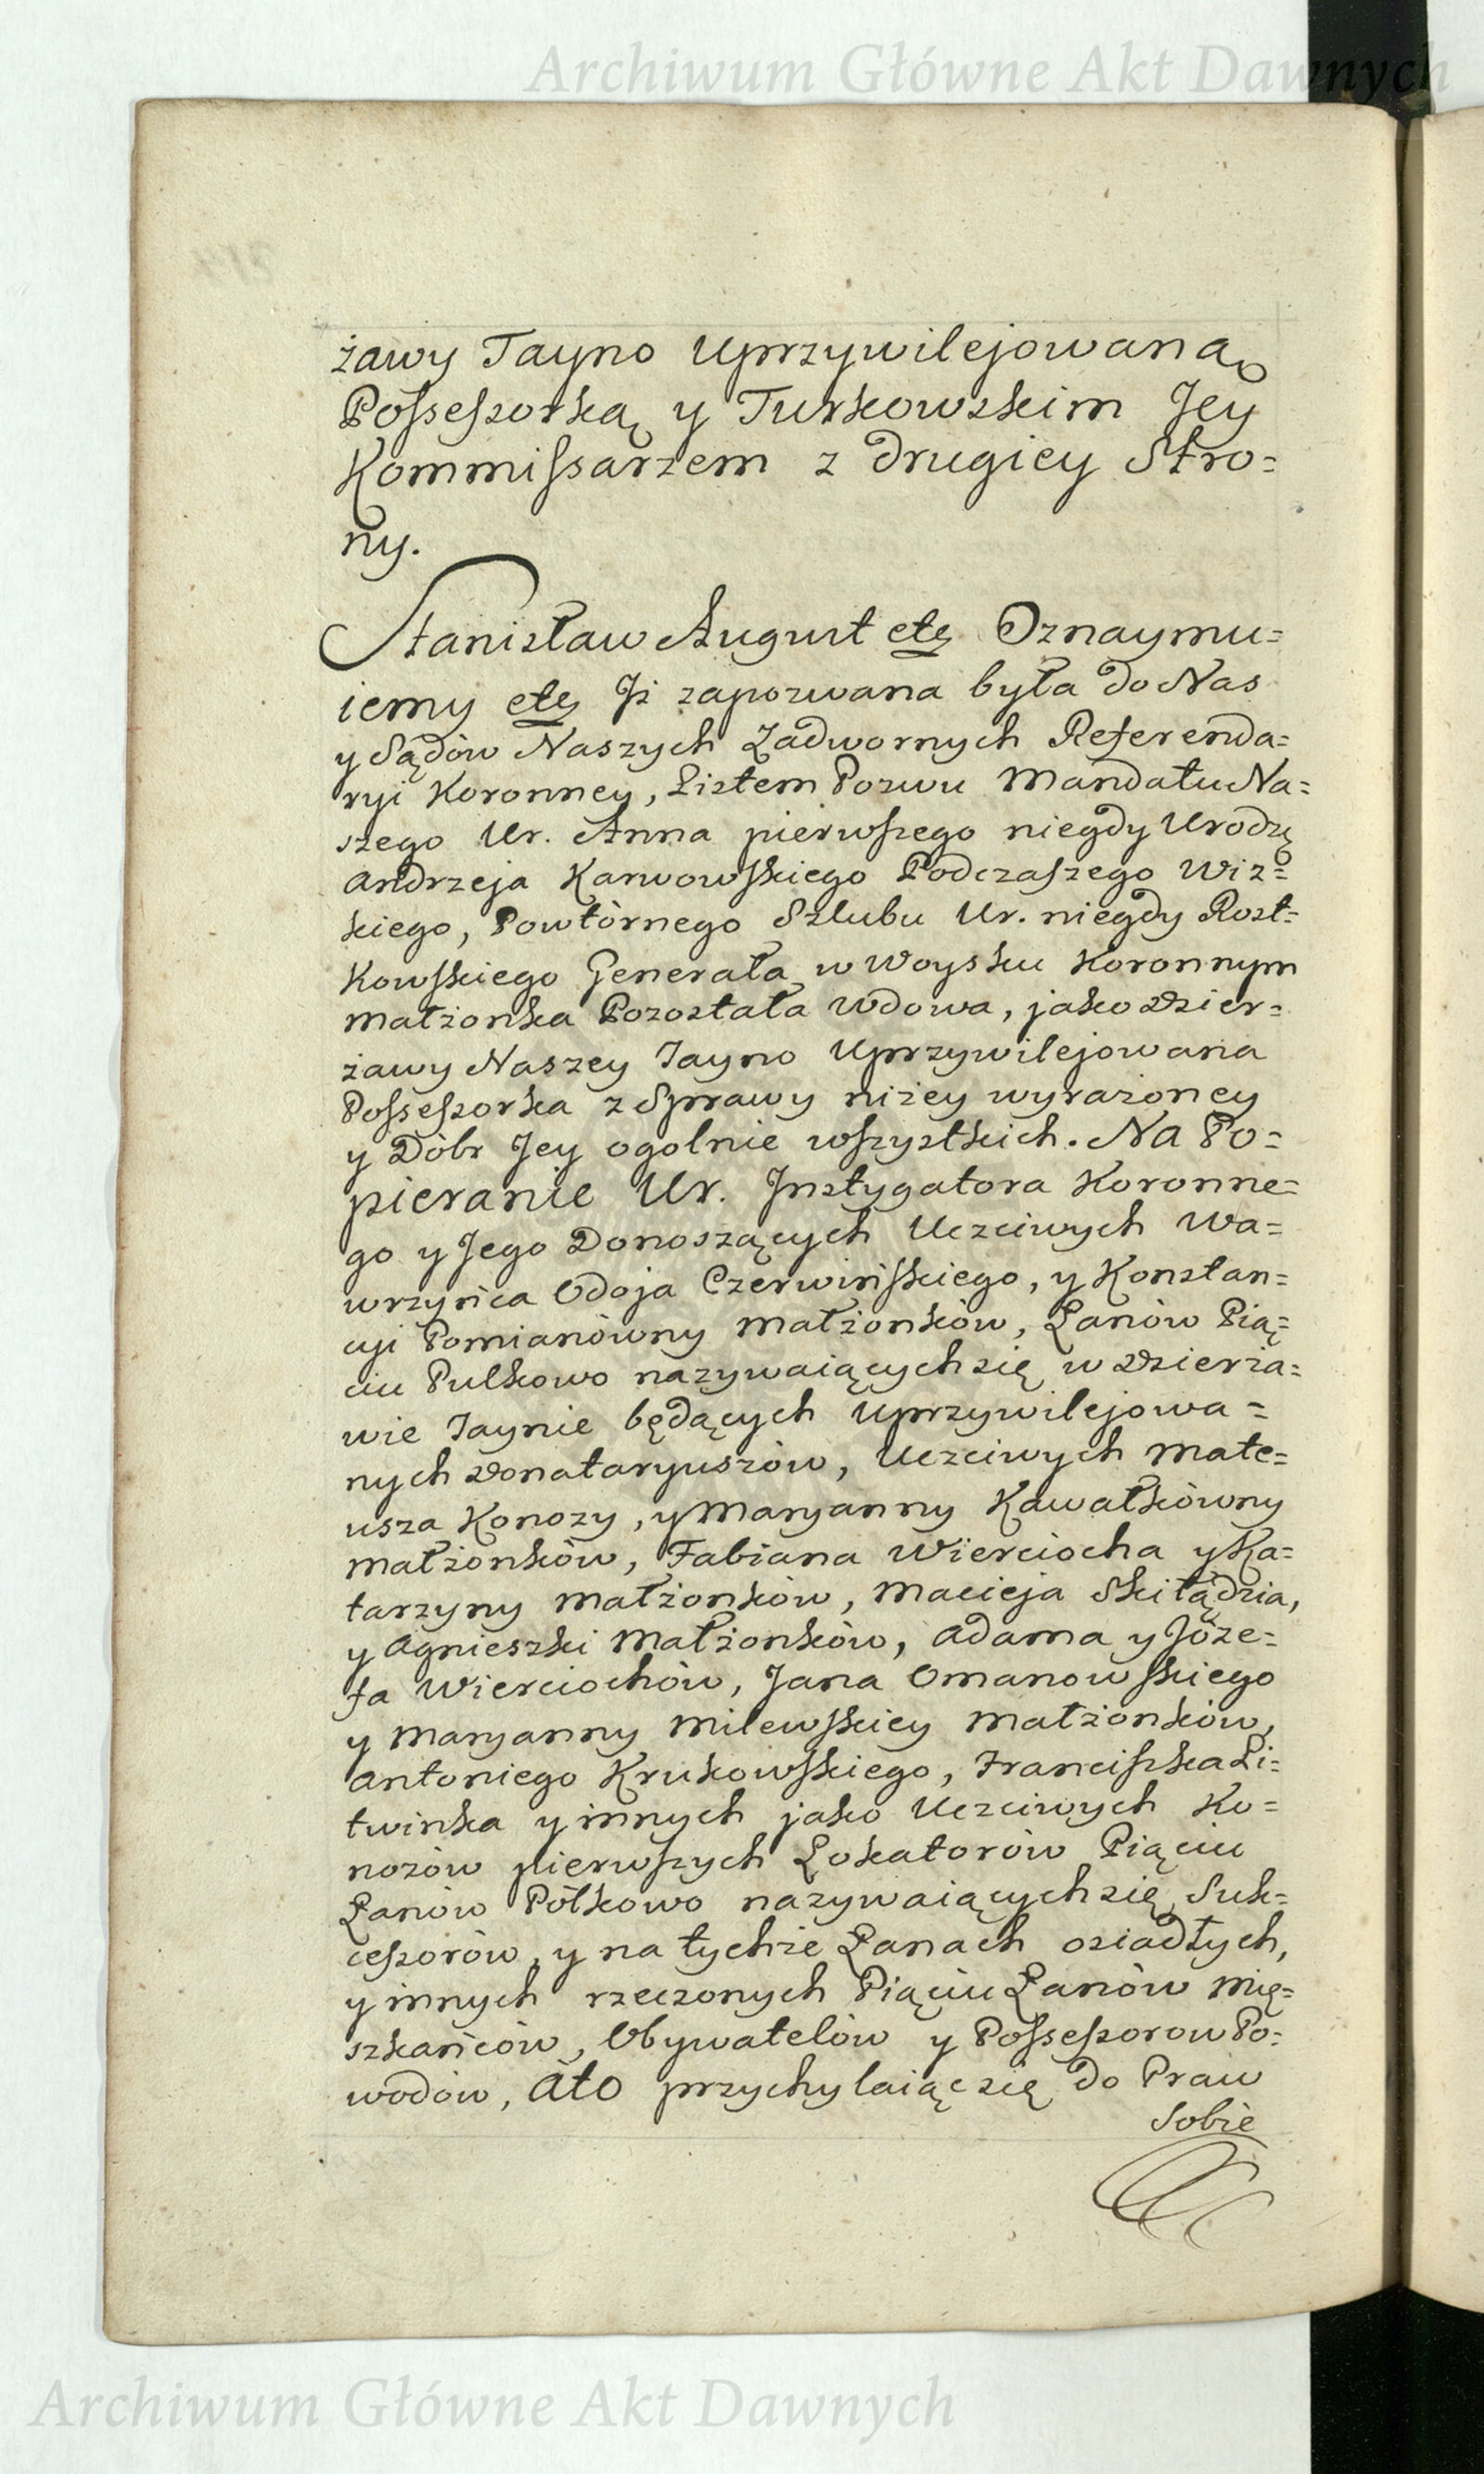 Archiwum Główne Akt Dawnych
żawy Tayno Uprzywilejowaną
Possessorką y Turkowskim Jey
Kommissarzem z drugiey Stro=
ny.
Stanisław August etc Oznaymu=
iemy etc Jż zapozwana była do Nas
y Sądów Naszych Zadwornych Referenda=
ryi Koronney, Listem Pozwu Mandatu Na=
szego Ur. Anna pierwszego niegdy Urodzo
Andrzeja Karwowskiego Podczaszego Wiz=
kiego, Powtòrnego Szlubu Ur. niegdy Rost=
kowskiego Generała w Woysku Koronnym
Małżonka Pozostała Wdowa, jako Dzier=
żawy Naszey Tayno Uprzywilejowana
Possessorka z Sprawy niżey wyrażoney
y Dóbr Jey ogolnie wszystkich. Na Po=
pieranie Ur. Jnstygatora Koronne=
go y Jego Donoszących Uczciwych Wa=
wrzyńca Odoja Czerwińskiego, y Konstan=
cyi Pomianówny Małżonków, Łanów Pią=
ciu Pulkowo nazywaiących się w Dzierża=
wie Taynie będących Uprzywilejowa=
nych Donataryuszów, Uczciwych Mate=
usza Konozy, y Maryanny Kawałkówny
Małżonków, Fabiana Wierciocha y Ka=
tarzyny Małżonków, Macieja Skiłądzia,
y Agnieszki Małżonków, Adama y Józe=
fa Wierciochów, Jana Omanowskiego
y Maryanny Milewskiey Małżonków,
Antoniego Krukowskiego, Franciszka Li=
twinka y innych jako Uczciwych Ko=
nozów pierwszych Lokatorów Piąciu
Łanów Pólkowo nazywaiących się Suk=
cessorów, y na tychże Łanach osiadłych,
y innych rzeczonych Piąciu Łanów Mię=
szkańców, Obywatelów y Possessorow Po=
wodów, Ato przychylaiąc się do Praw
Sobie
Archiwum Główne Akt Dawnych